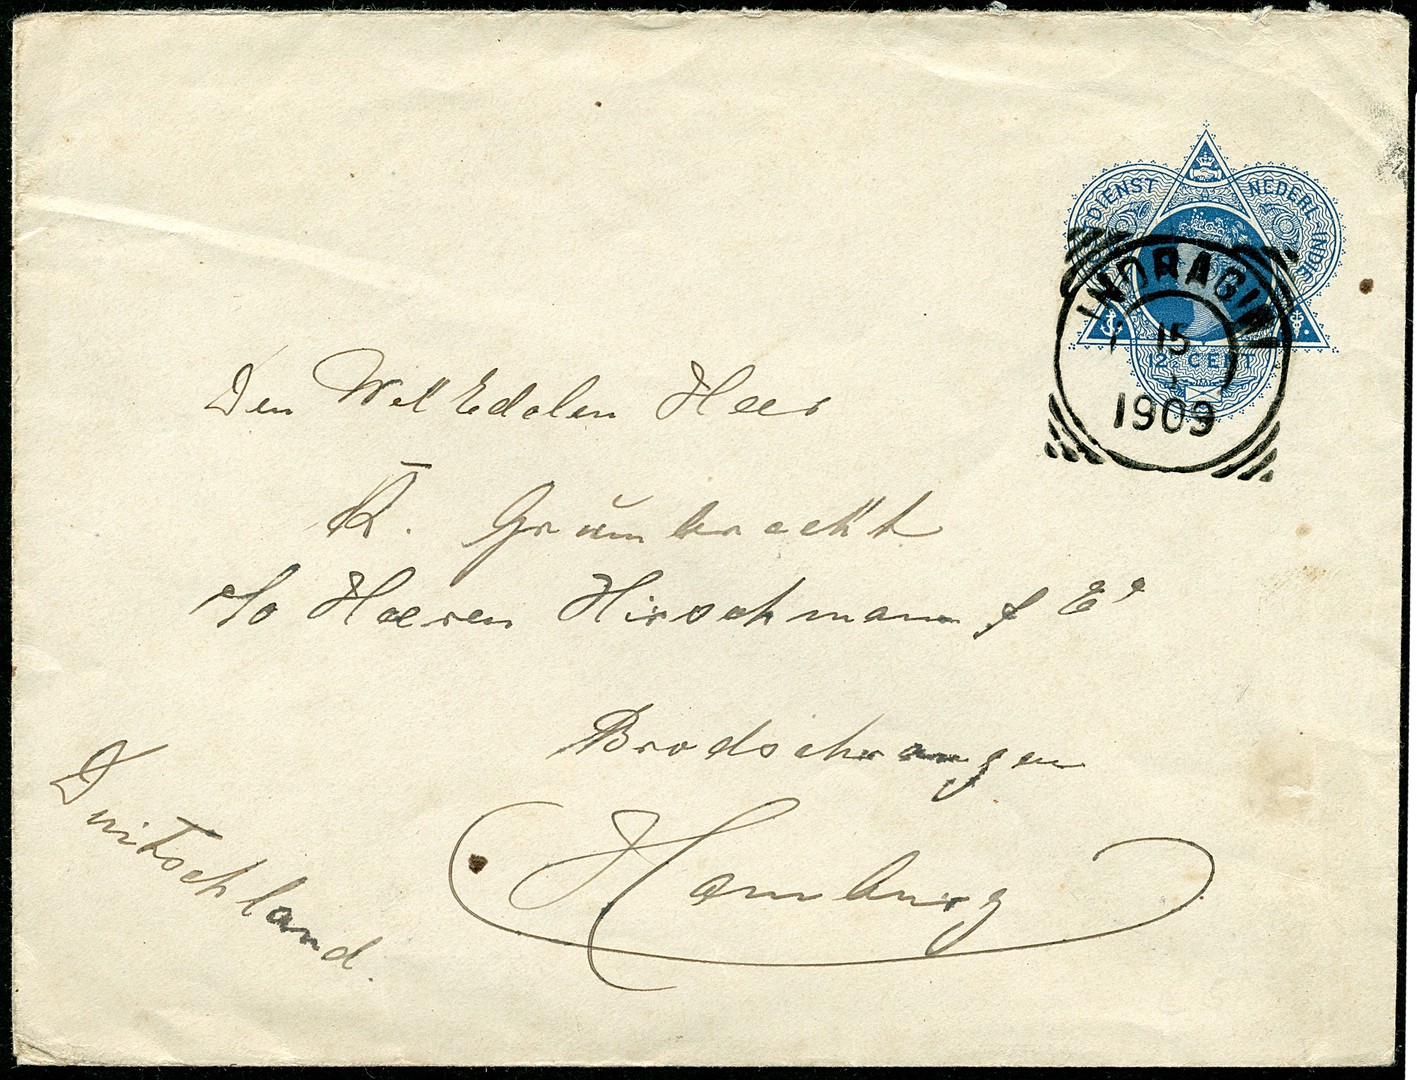 DIENST NEDERL INDIE
INDRAGIRI
15
1909
12½ CENT
Den WelEdelen Heer
K. Grümbrecht
c/o Heeren Hirschmann & Co
Brodschrangen
Hamburg
Duitschland.